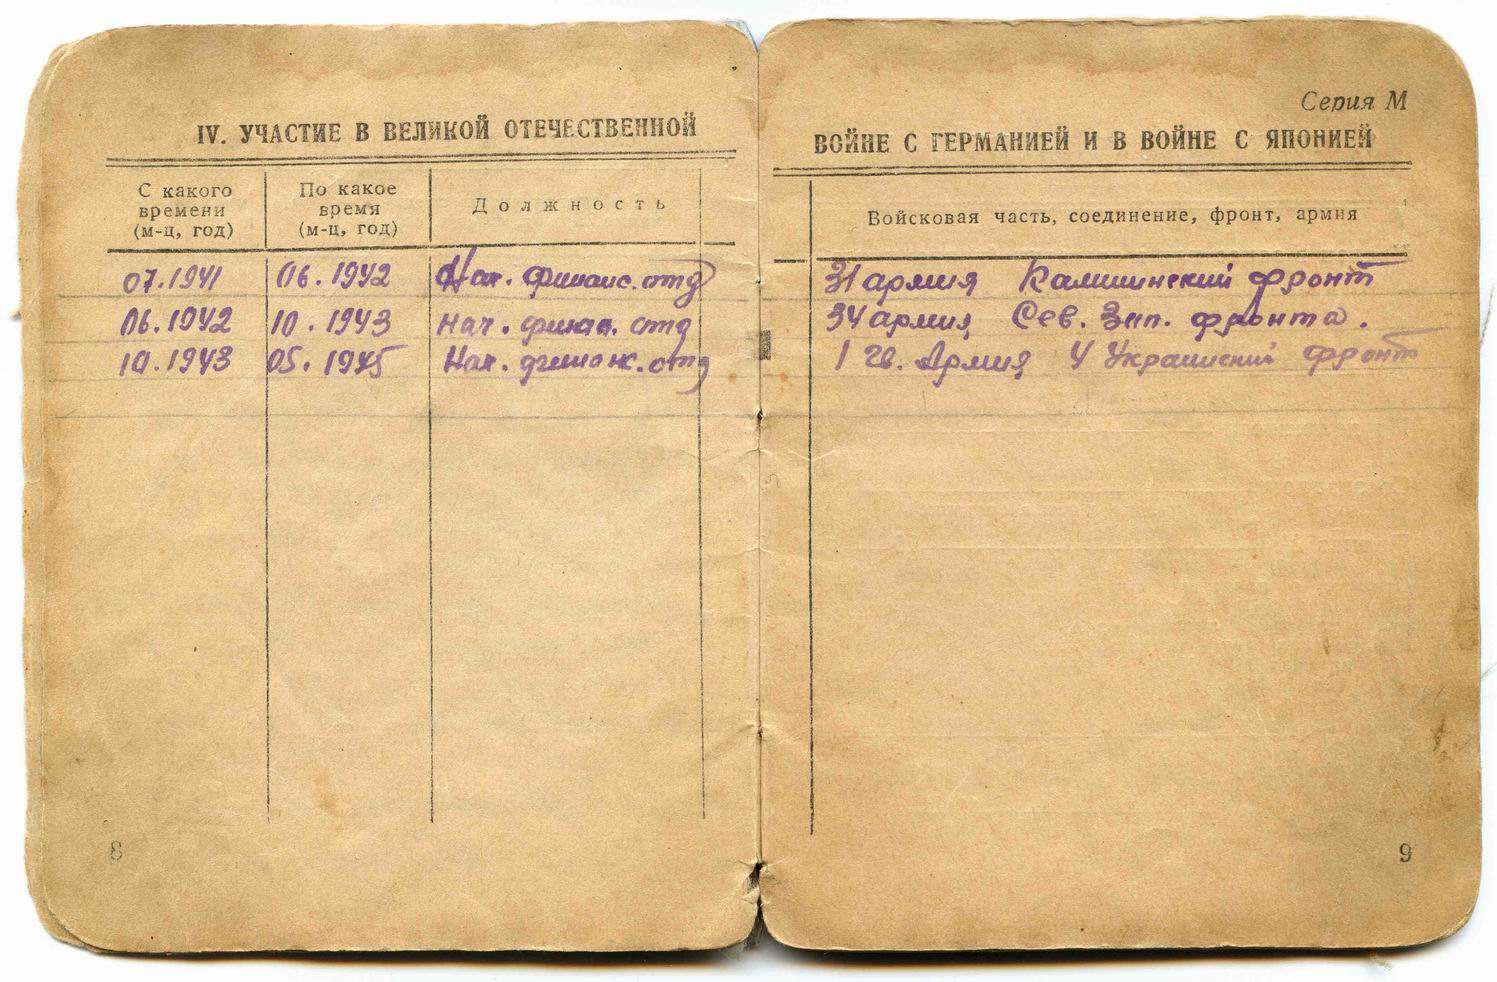 Серия М
IV. УЧАСТИЕ В ВЕЛИКОЙ ОТЕЧЕСТВЕННОЙ ВОЙНЕ С ГЕРМАНИЕЙ И В ВОЙНЕ С ЯПОНИЕЙ
С какого времени (м-ц, год) По какое время (м-ц, год) Должность Войсковая часть, соединение, фронт, армия
07.1941 06.1942 Нач. финанс. отд 31 армия Калининский фронт
06.1942 10.1943 нач. финан. отд 34 армия Сев. Зап. фронта.
10.1943 05.1945 Нач. финанс. отд 1 гв. Армия 4 Украинский фронт
8 9